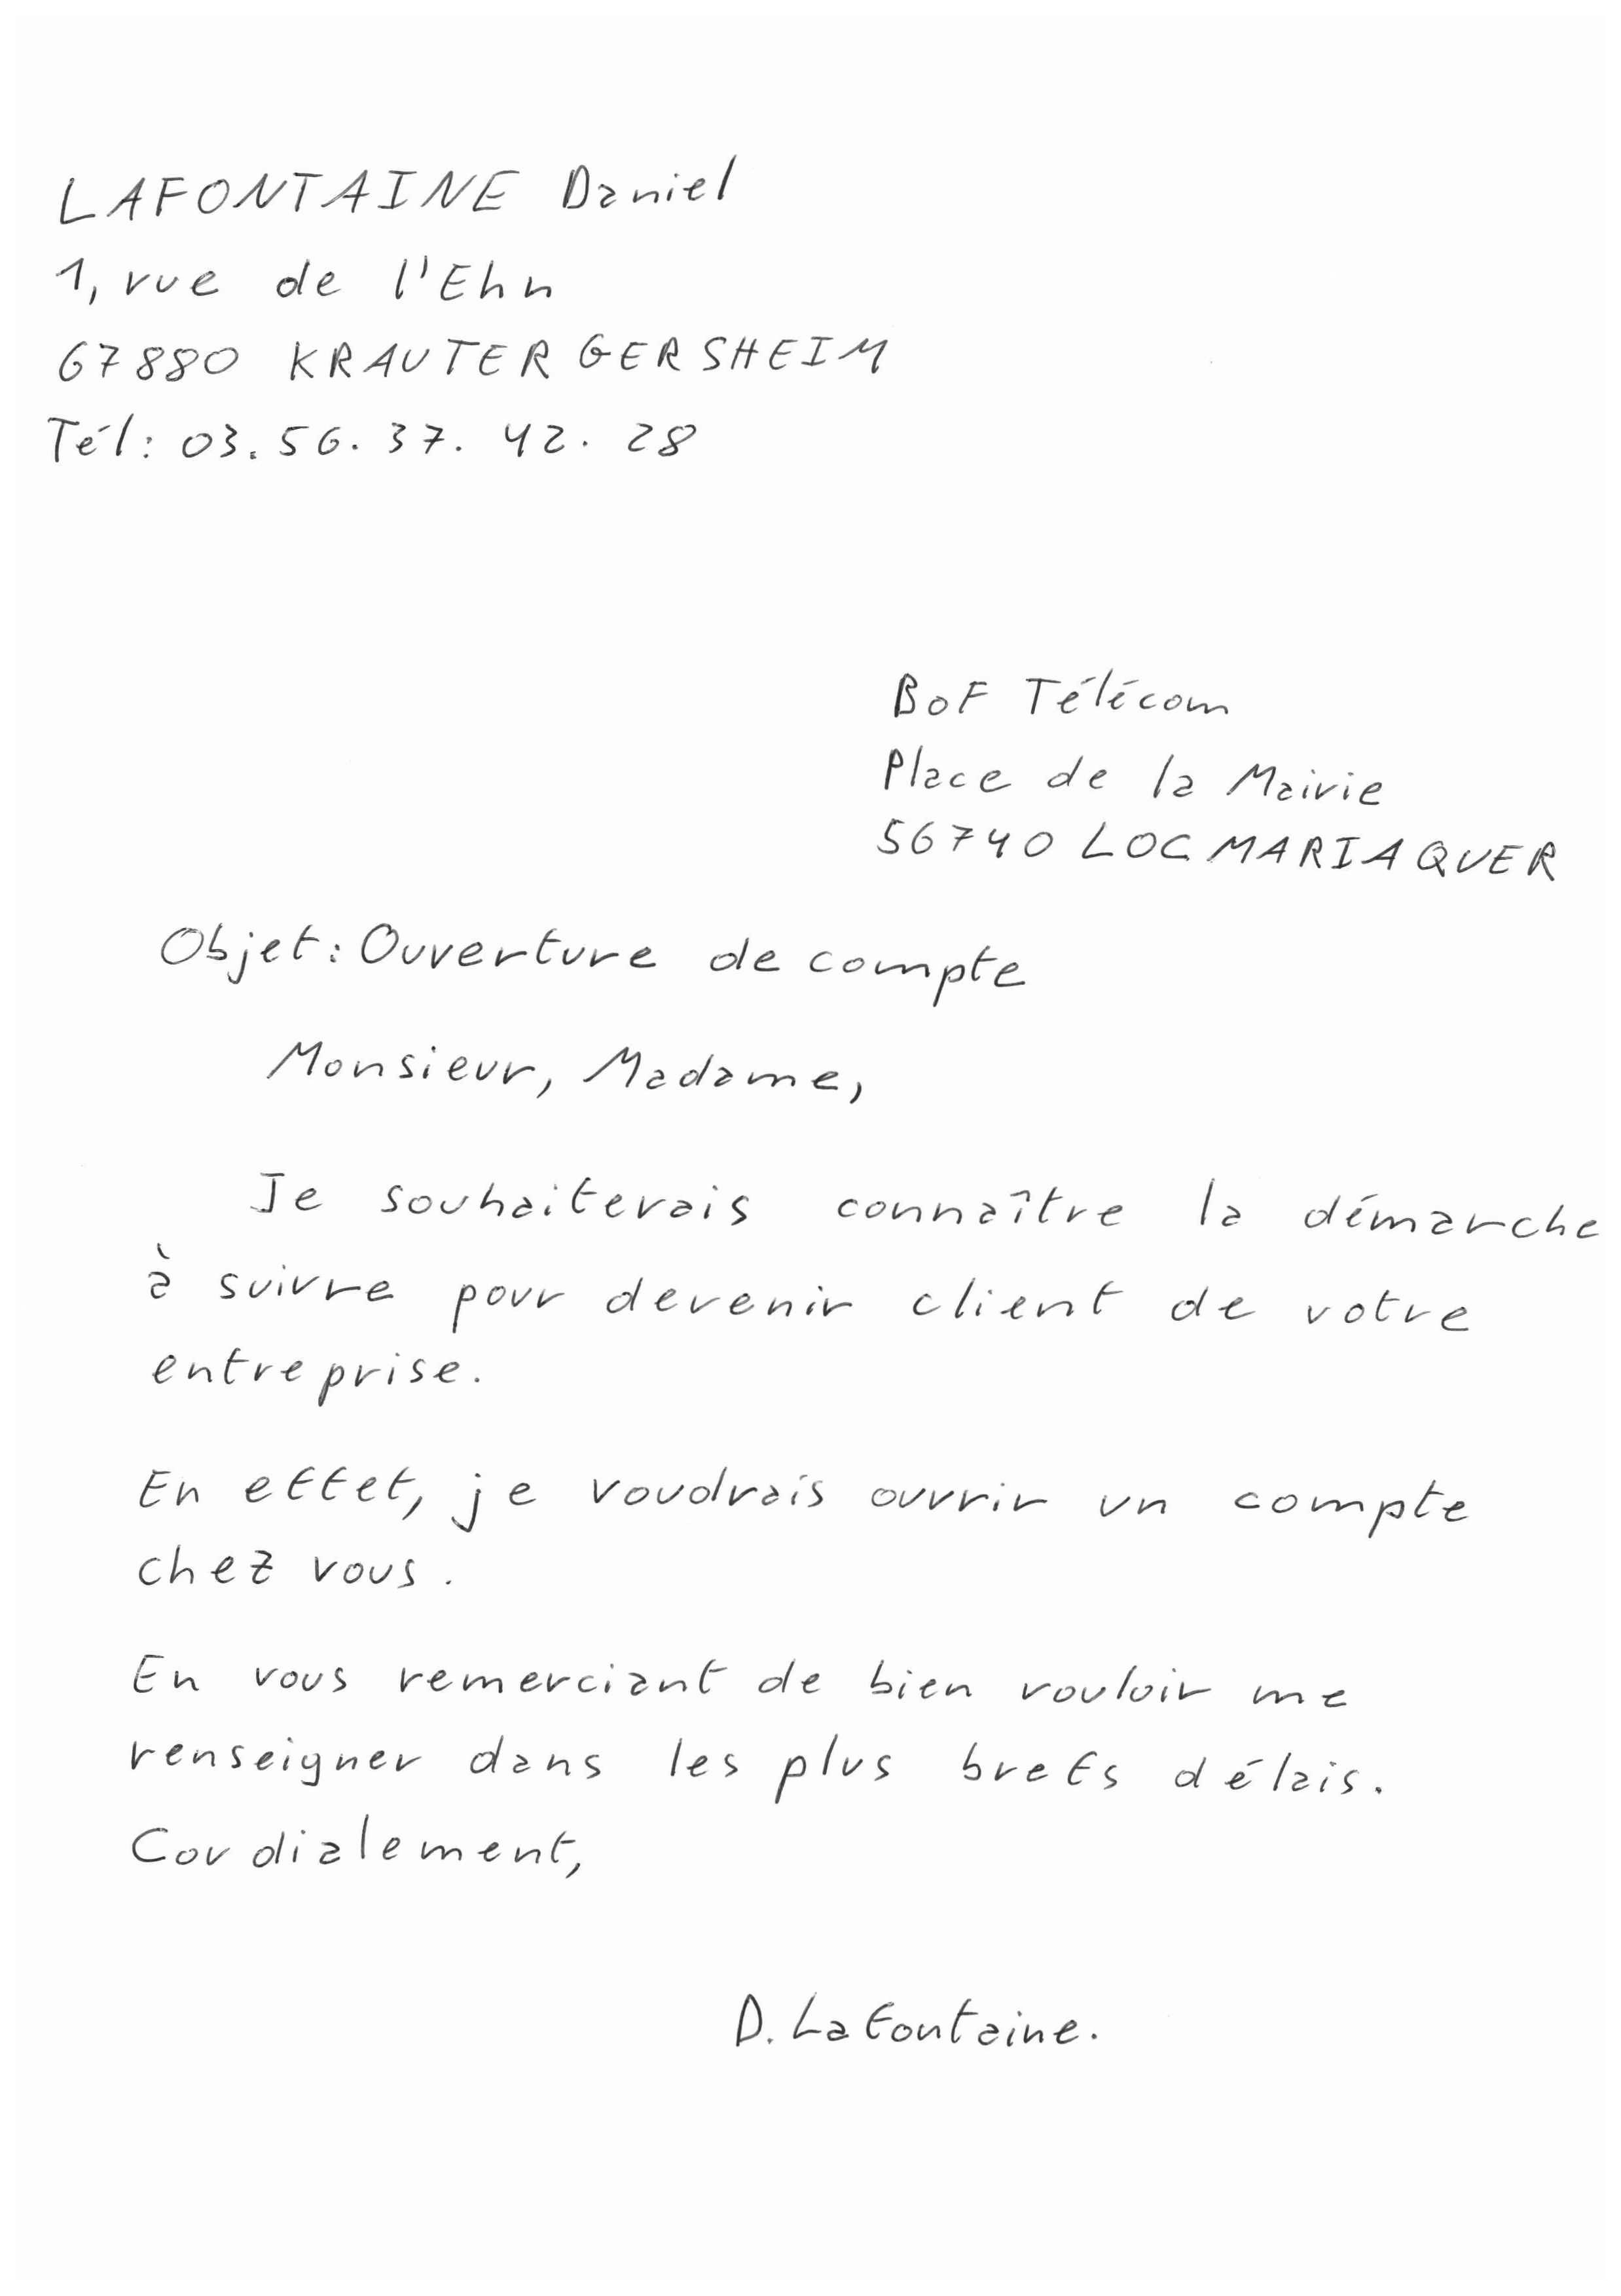 LAFONTAINE Daniel
1, rue de l'Ehn
67880 KRAUTERGERSHEIM
Tél: 03.56.37.42.28
BoF Télécom
Place de la Mairie
56740 LOCMARIAQUER
Objet: Ouverture de compte
Monsieur, Madame,
Je souhaiterais connaître la démarche
à suivre pour devenir client de votre
entreprise.
En effet, je voudrais ouvrir un compte
chez vous.
En vous remerciant de bien vouloir me
renseigner dans les plus brefs délais.
Cordialement,
D. Lafontaine.